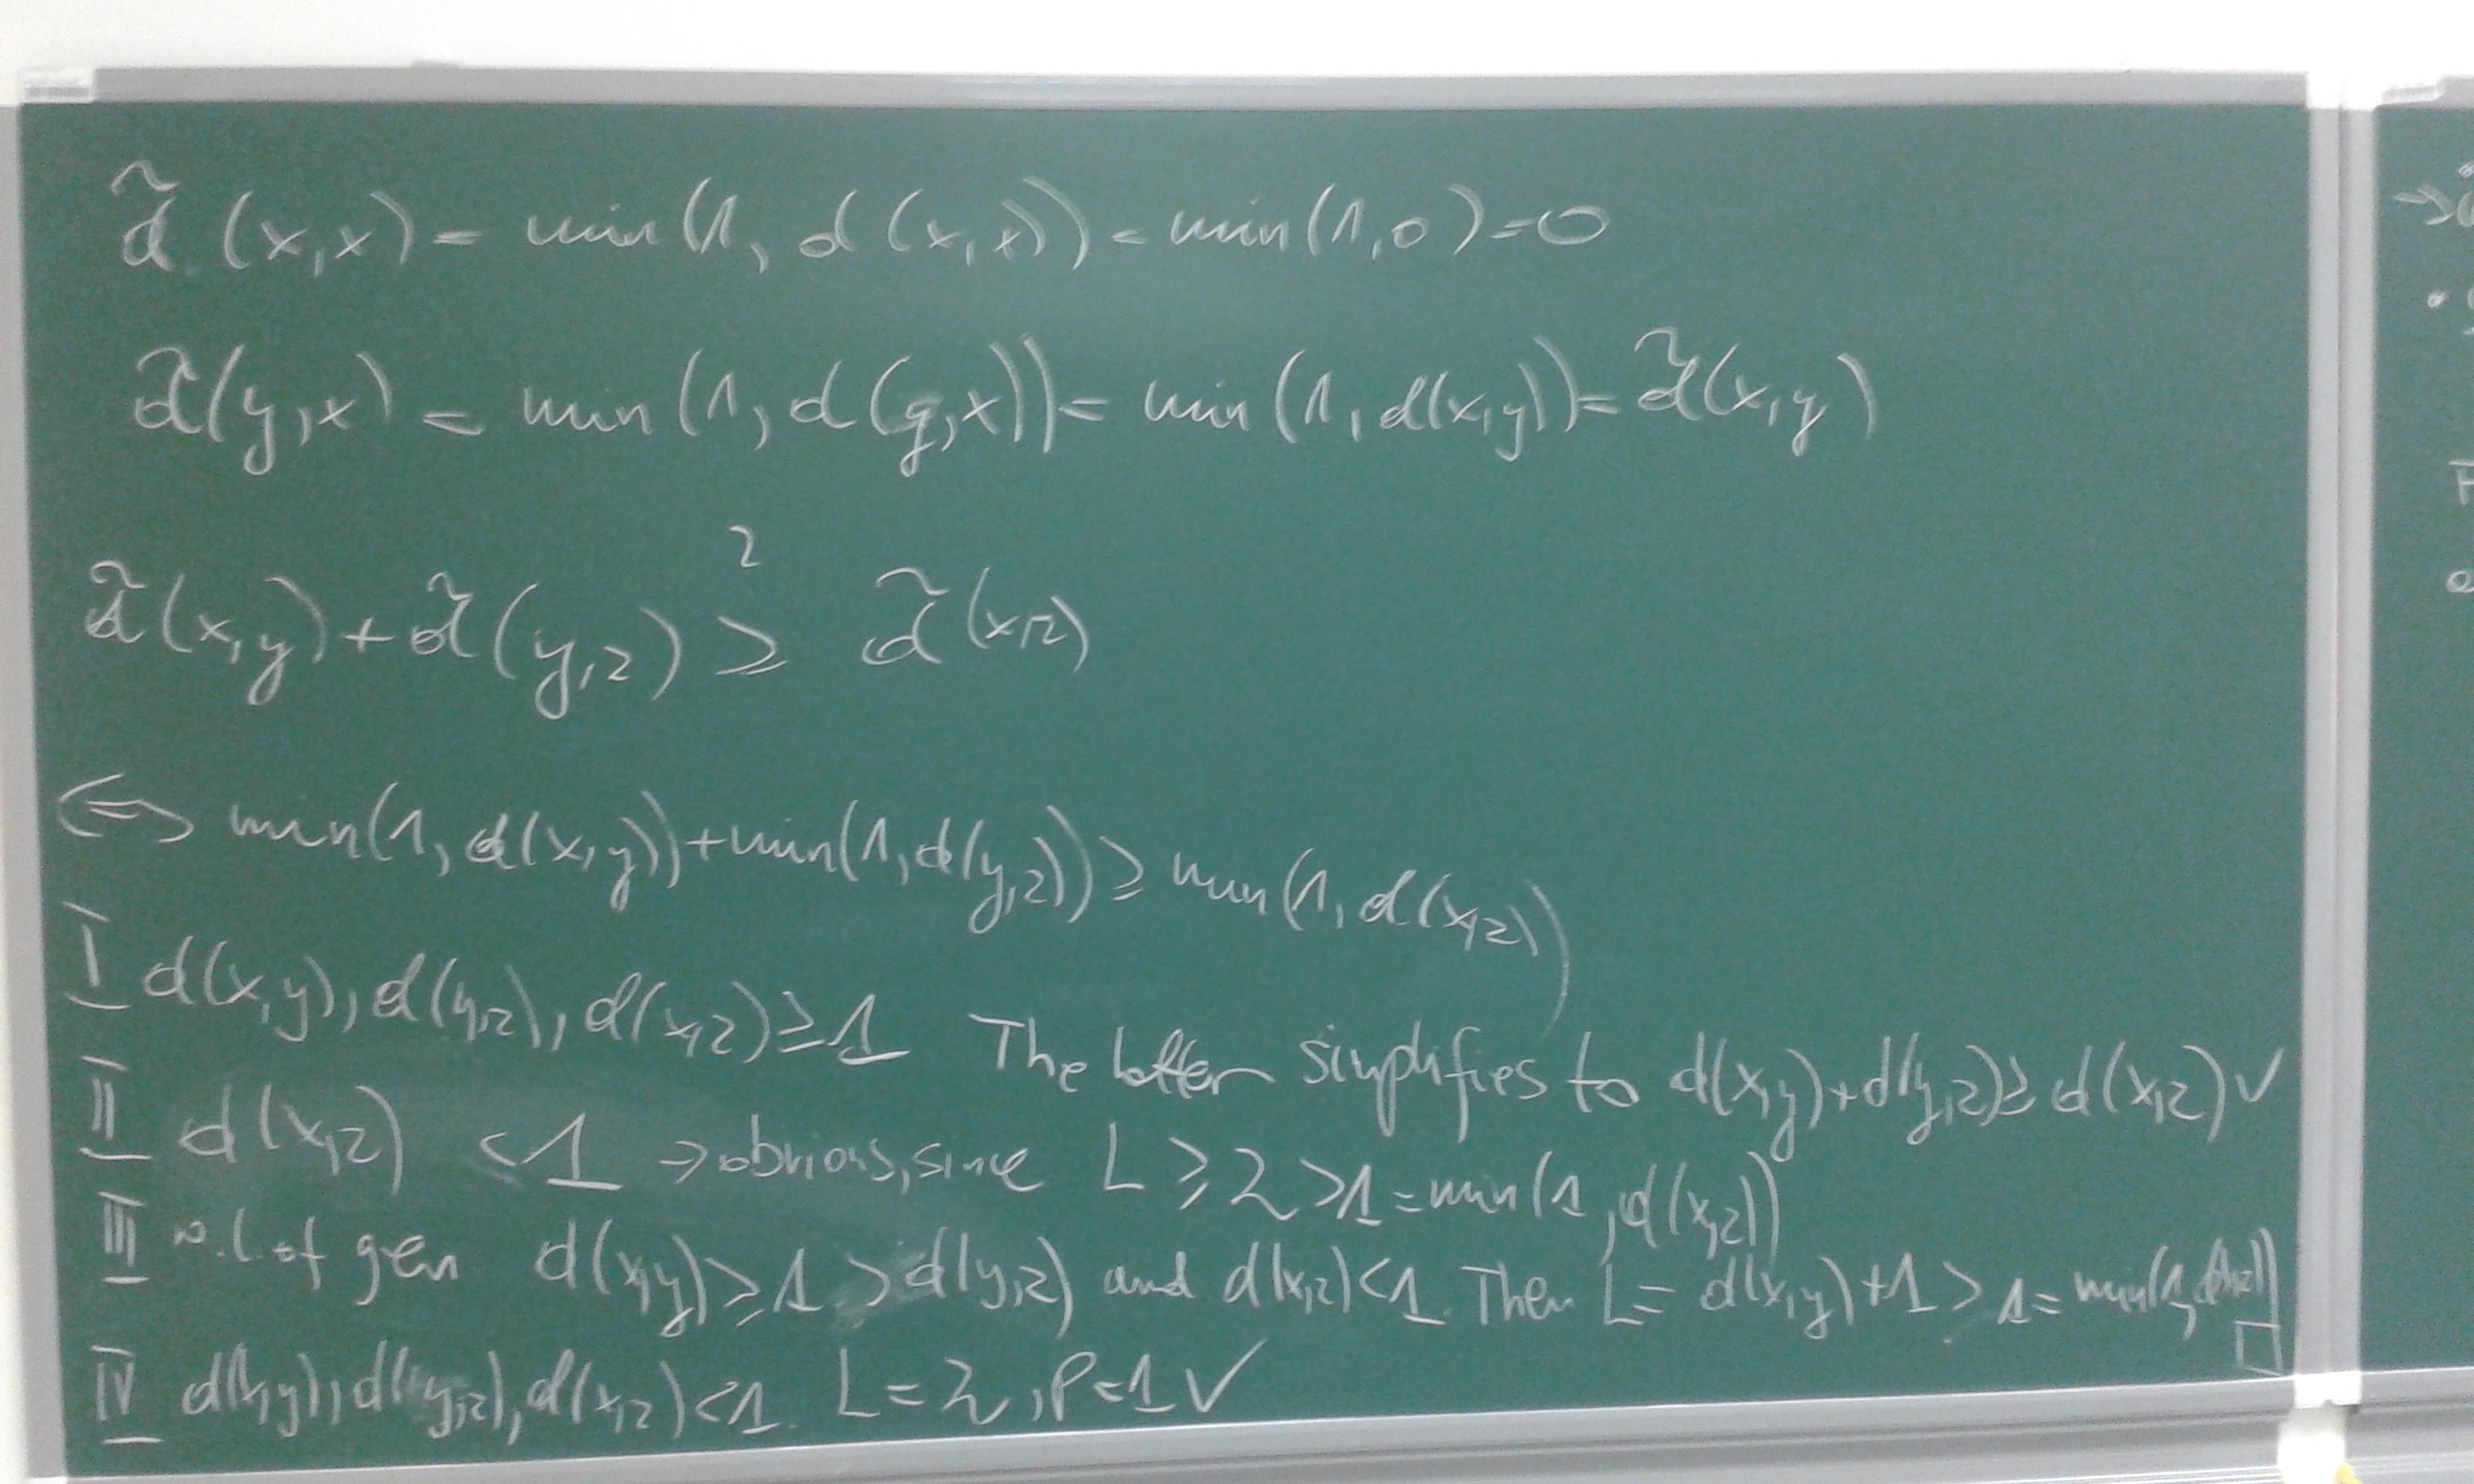 d̃(x,x) = min(1, d(x,x)) = min(1,0) = 0
d̃(y,x) = min(1, d(y,x)) = min(1, d(x,y)) = d̃(x,y)
?
d̃(x,y) + d̃(y,z) ≥ d̃(x,z)
⟺ min(1, d(x,y)) + min(1, d(y,z)) ≥ min(1, d(x,z))
I d(x,y), d(y,z), d(x,z) ≥ 1 The latter simplifies to d(x,y) + d(y,z) ≥ d(x,z) ✓
II d(x,z) < 1 → obvious, since L ≥ 2 > 1 = min(1, d(x,z))
III w.l.of gen d(x,y) ≥ 1 > d(y,z) and d(x,z) < 1. Then L = d(x,y) + 1 > 1 = min(1, d(x,z)) □
IV d(x,y), d(y,z), d(x,z) < 1. L = 2, P = 1 ✓